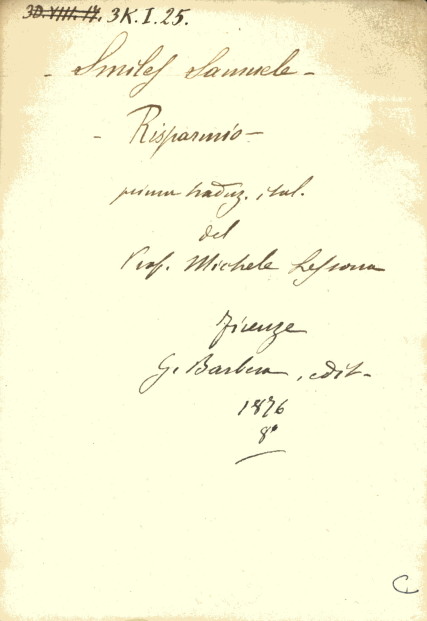 3D.VIII.17. 3K.I.25.
- Smiles Samuele -
- Risparmio -
prima traduz. ital.
del
Prof. Michele Lessona
Firenze
G. Barbera, edit-
1876
8°
C